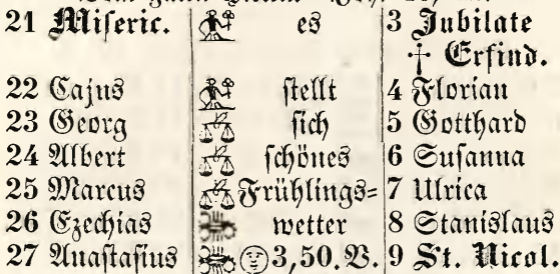 21 Miſeric. es 3 Jubilate
† Erfind.
22 Cajus ſtellt 4 Florian
23 Georg ſich 5 Gotthard
24 Albert ſchönes 6 Suſanna
25 Marcus Frühlings= 7 Ulrica
26 Ezechias wetter 8 Stanislaus
27 Anaſtaſius 3,50. V. 9 St. Nicol.